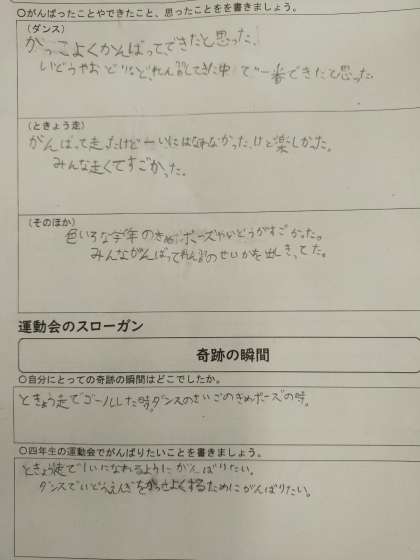 ○がんばったことやできたこと、思ったことをを書きましょう。
(ダンス)
がっこよくかんばってできたと思った。
いどうやおどりなど、れん習してきた中で一番できたと思った
(ときょう走)
がんばって走ったけど一いにはなれなかったけど楽しかった。
みんな走くてすごかった。
(そのほか)
色いろな学年のきめポーズやいどうがすごかった。
みんながんばってれん習のせいかを出しきってた。
運動会のスローガン
奇跡の瞬間
○自分にとっての奇跡の瞬間はどこでしたか。
ときょう走でゴールした時。ダンスのさいごのきめポーズの時。
○四年生の運動会でがんばりたいことを書きましょう。
ときょう走で1いになれるようにがんばりたい。
ダンスでいどうえんぎをかっせよくするためにがんばりたい。